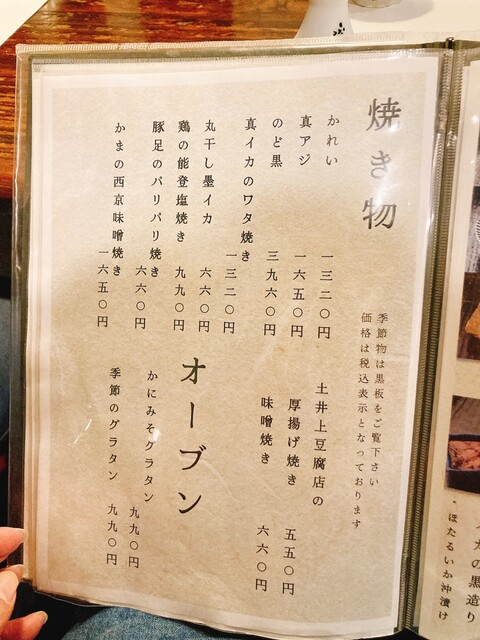 焼き物
季節物は黒板をご覧下さい
価格は税込表示となっております
かれい 一三二〇円
真アジ 一六五〇円
のど黒 三九六〇円
真イカのワタ焼き 一三二〇円
丸干し墨イカ 六六〇円
鶏の能登塩焼き 九九〇円
豚足のパリパリ焼き 六六〇円
かまの西京味噌焼き 一六五〇円
土井上豆腐店の
厚揚げ焼き 五五〇円
味噌焼き 六六〇円
オーブン
かにみそグラタン 九九〇円
季節のグラタン 九九〇円
の黒造り
ほたるいか沖漬け